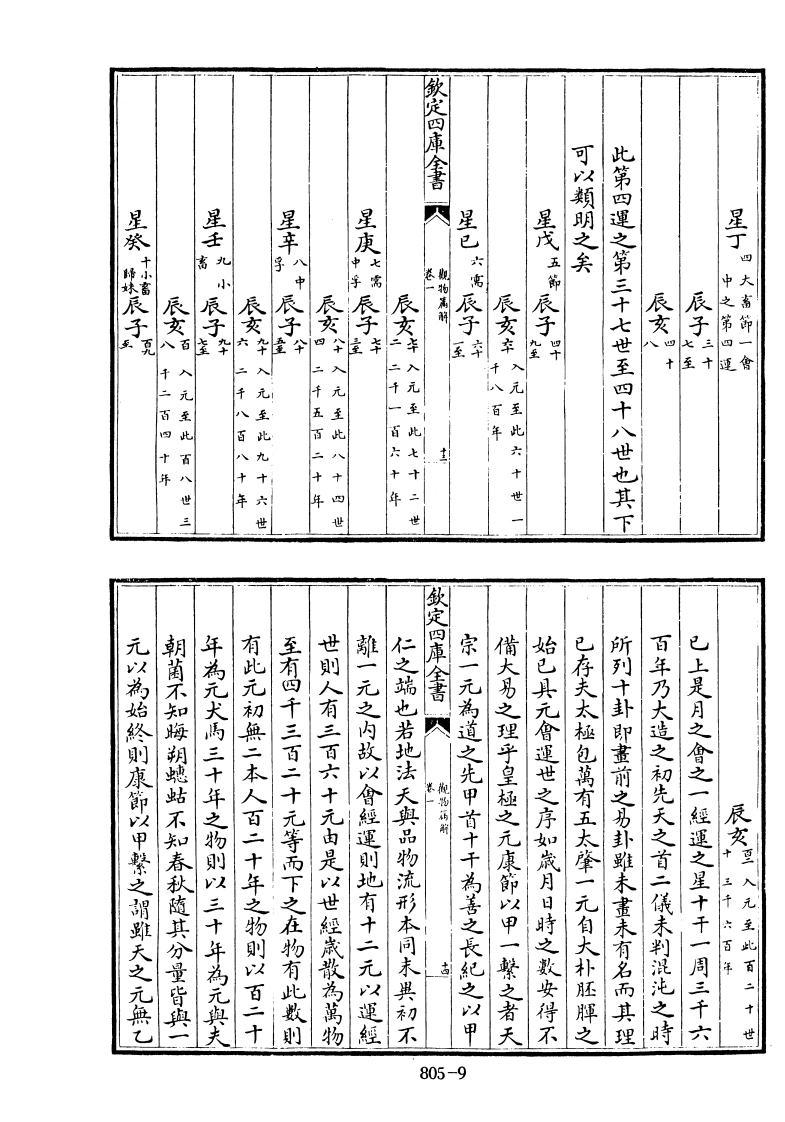 星丁四大畜節一會中之第四運
辰子三十七至
辰亥四十八
此第四運之第三十七世至四十八世也其下
可以類明之矣
星戊五節辰子四十九至
辰亥六十入元至此六十世一千八百年
星已六需辰子六十一至
欽定四庫全書
觀物篇解
卷一
十三
辰亥七十二入元至此七十二世二千一百六十年
星庚七需中孚辰子七十三至
辰亥八十四入元至此八十四世二千五百二十年
星辛八中孚辰子八十五至
辰亥九十六入元至此九十六世二千八百八十年
星壬九小畜辰子九十七至
辰亥百八入元至此百八世三千二百四十年
星癸十小畜歸妹辰子百九至
辰亥百二十入元至此百二十世三千六百年
已上是月之會之一經運之星十干一周三千六
百年乃大造之初先天之首二儀未判混沌之時
所列十卦即畫前之易卦雖未畫未有名而其理
已存夫太極包萬有五太肇一元自大朴胚腪之
始已具元會運世之序如歲月日時之數安得不
備大易之理乎皇極之元康節以甲一繫之者天
宗一元為道之先甲首十干為善之長紀之以甲
欽定四庫全書
觀物篇解
卷一
十四
仁之端也若地法天與品物流形本同未異初不
離一元之内故以會經運則地有十二元以運經
世則人有三百六十元由是以世經歲散為萬物
至有四千三百二十元等而下之在物有此數則
有此元初無二本人百二十年之物則以百二十
年為元犬馬三十年之物則以三十年為元與夫
朝菌不知晦朔蟪蛄不知春秋隨其分量皆與一
元以為始終則康節以甲繫之謂雖天之元無乙
805-9